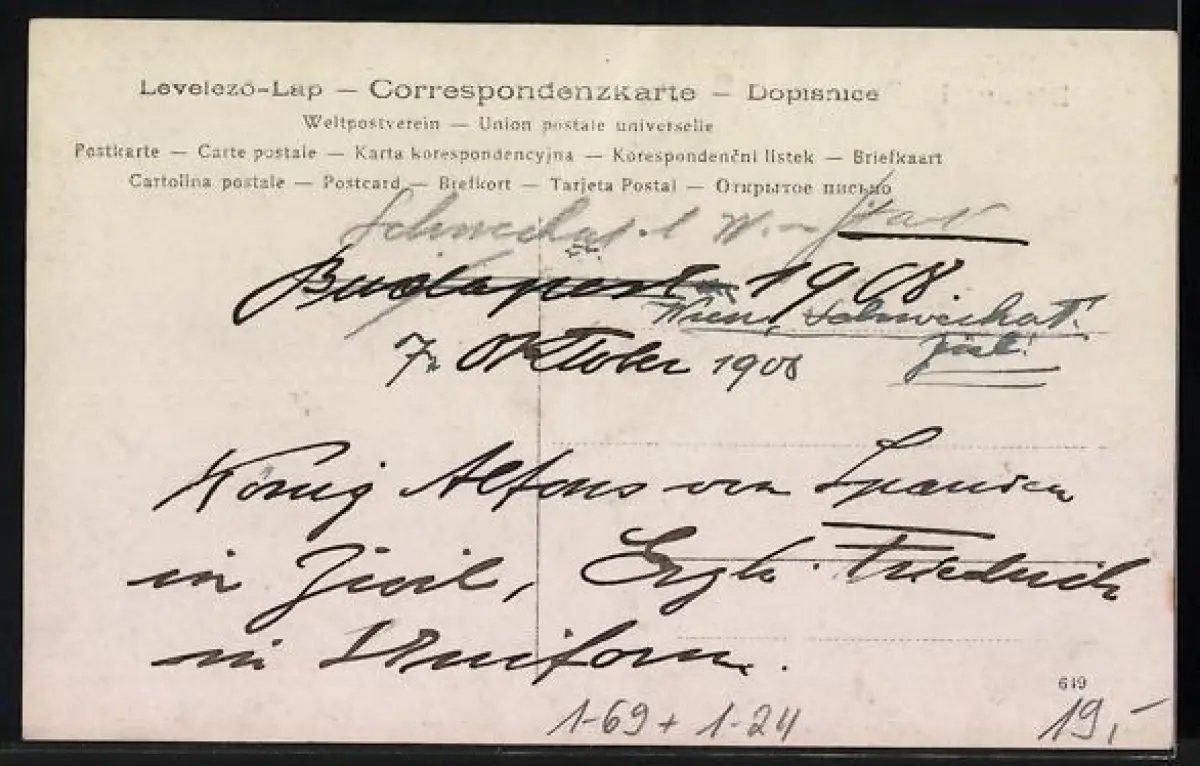 Levelező-Lap — Correspondenzkarte — Dopisnice
Weltpostverein — Union postale universelle
Postkarte — Carte postale — Karta korespondencyjna — Korespondenční listek — Briefkaart
Cartolina postale — Postcard — Brefkort — Tarjeta Postal — Открытое письмо
Budapest 1908.
Wien, Schwechat.
7. Oktober 1908
König Alfons von Spanien
in Zivil, Erzh. Friedrich
in Uniform.
649
1-69 + 1-24
19,-